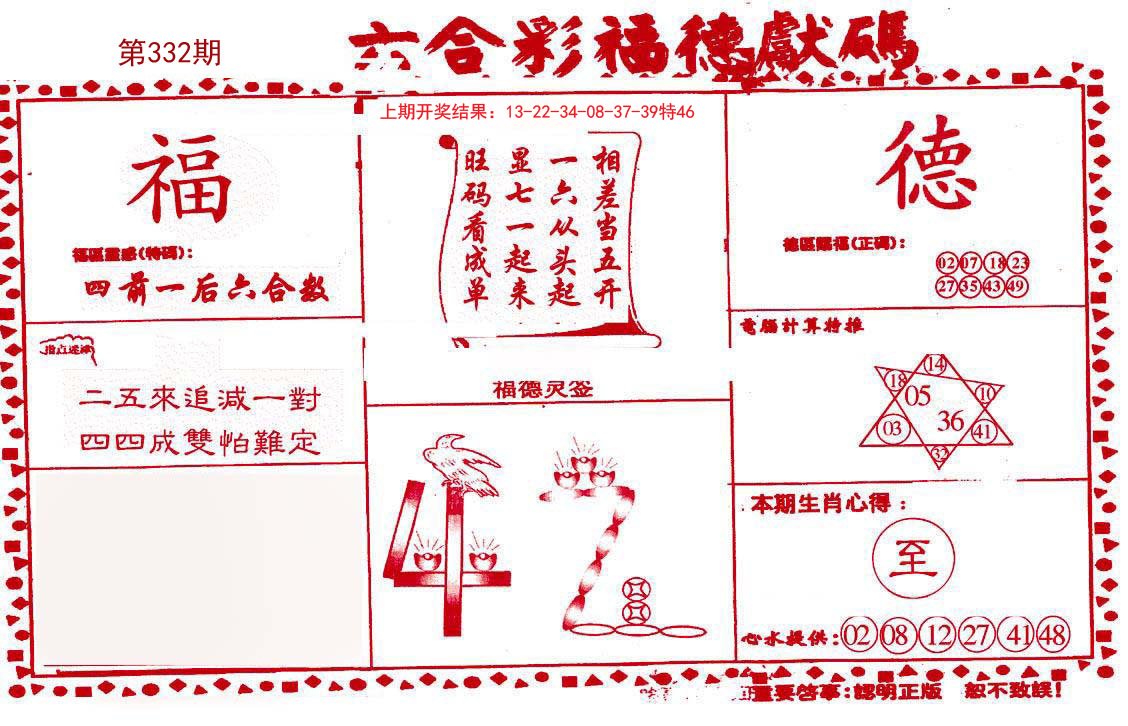 第332期
六合彩福德獻碼
上期开奖结果：13-22-34-08-37-39特46
福
福區靈感(特码)：
四前一后六合数
相差当五开
一六从头起
显七一起来
旺码看成单
德
德區賜福(正碼)：
02 07 18 23
27 35 43 49
指点迷津
二五來追減一對
四四成雙怕難定
福德灵签
電腦計算特推
14
18
05
10
03
36
41
32
本期生肖心得：
至
心水提供：02 08 12 27 41 48
重要啓事：認明正版 恕不致誤！